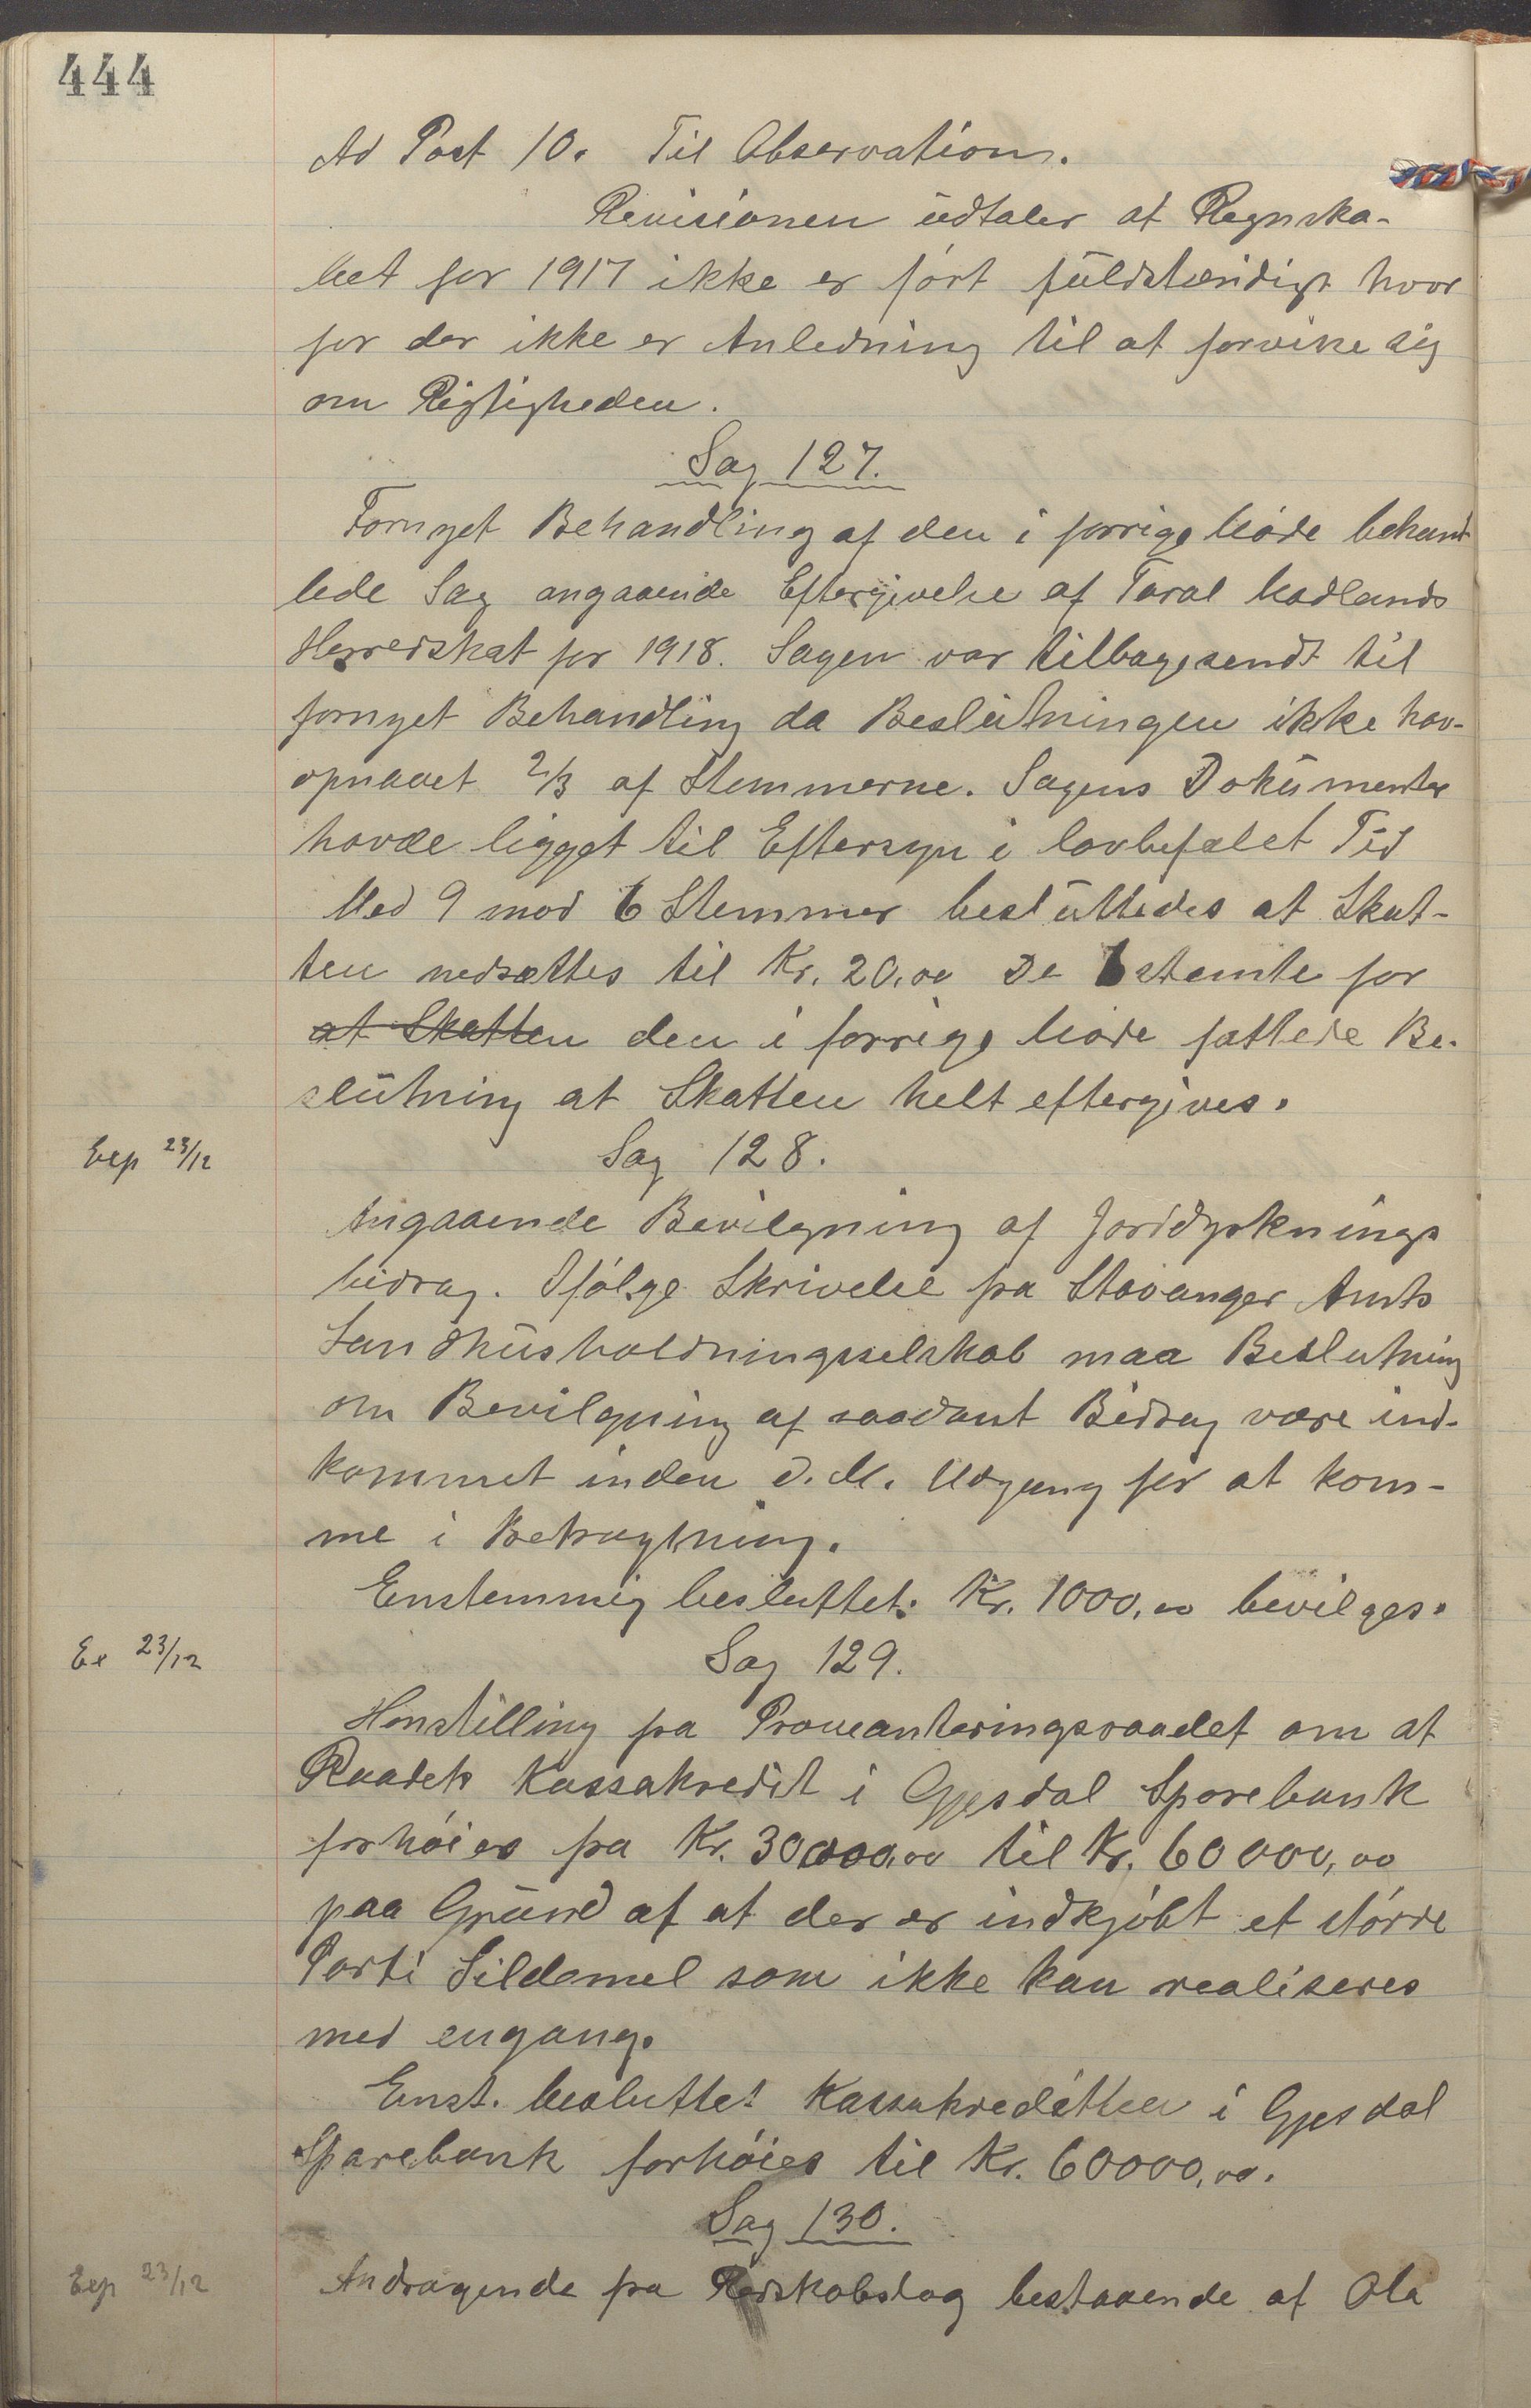 444
Ad Post 10. Til Observation.
Revisionen udtaler at Regnska-
bet for 1917 ikke er ført fuldstændigt hvor
for der ikke er Anledning til at forvisse sig
om Rigtigheden.
Sag 127.
Fornyet Behandling af den i forrige Møde behand
lede Sag angaaende Eftergivelse af Taral Madlands
Herredskat for 1918. Sagen var tilbagesendt til
fornyet Behandling da Beslutningen ikke hav-
opnaaet 2/3 af Stemmerne. Sagens Dokumenter
havde ligget til Eftersyn i lovbefalet Tid
Med 9 mod 6 Stemmer besluttedes at Skat-
ten nedsættes til Kr. 20,00 De 6 stemte for
at Skatten den i forrige Møde fattede Be-
slutning at Skatten helt eftergives.
Exp 23/12
Sag 128.
Angaaende Bevilgning af Jorddyrknings
bidrag. Ifølge Skrivelse fra Stavanger Amts
Landhusholdningsselskab maa Beslutning
om Bevilgning af saadant Bidrag være ind-
kommet inden d. M. Udgang for at kom-
me i Betragtning.
Enstemmig besluttet: Kr. 1000,00 bevilges.
Ex 23/12
Sag 129.
Henstilling fra Provianteringsraadet om at
Raadets Kassakredit i Gjesdal Sparebank
forhøies fra Kr. 30000,00 til Kr. 60000,00
paa Grund af at der er indkjøbt et større
Parti Sildemel som ikke kan realiseres
med engang.
Enst. besluttet Kassakreditten i Gjesdal
Sparebank forhøies til Kr. 60000,00.
Sag 130.
Exp 23/12
Andragende fra Redskabslag bestaaende af Ola